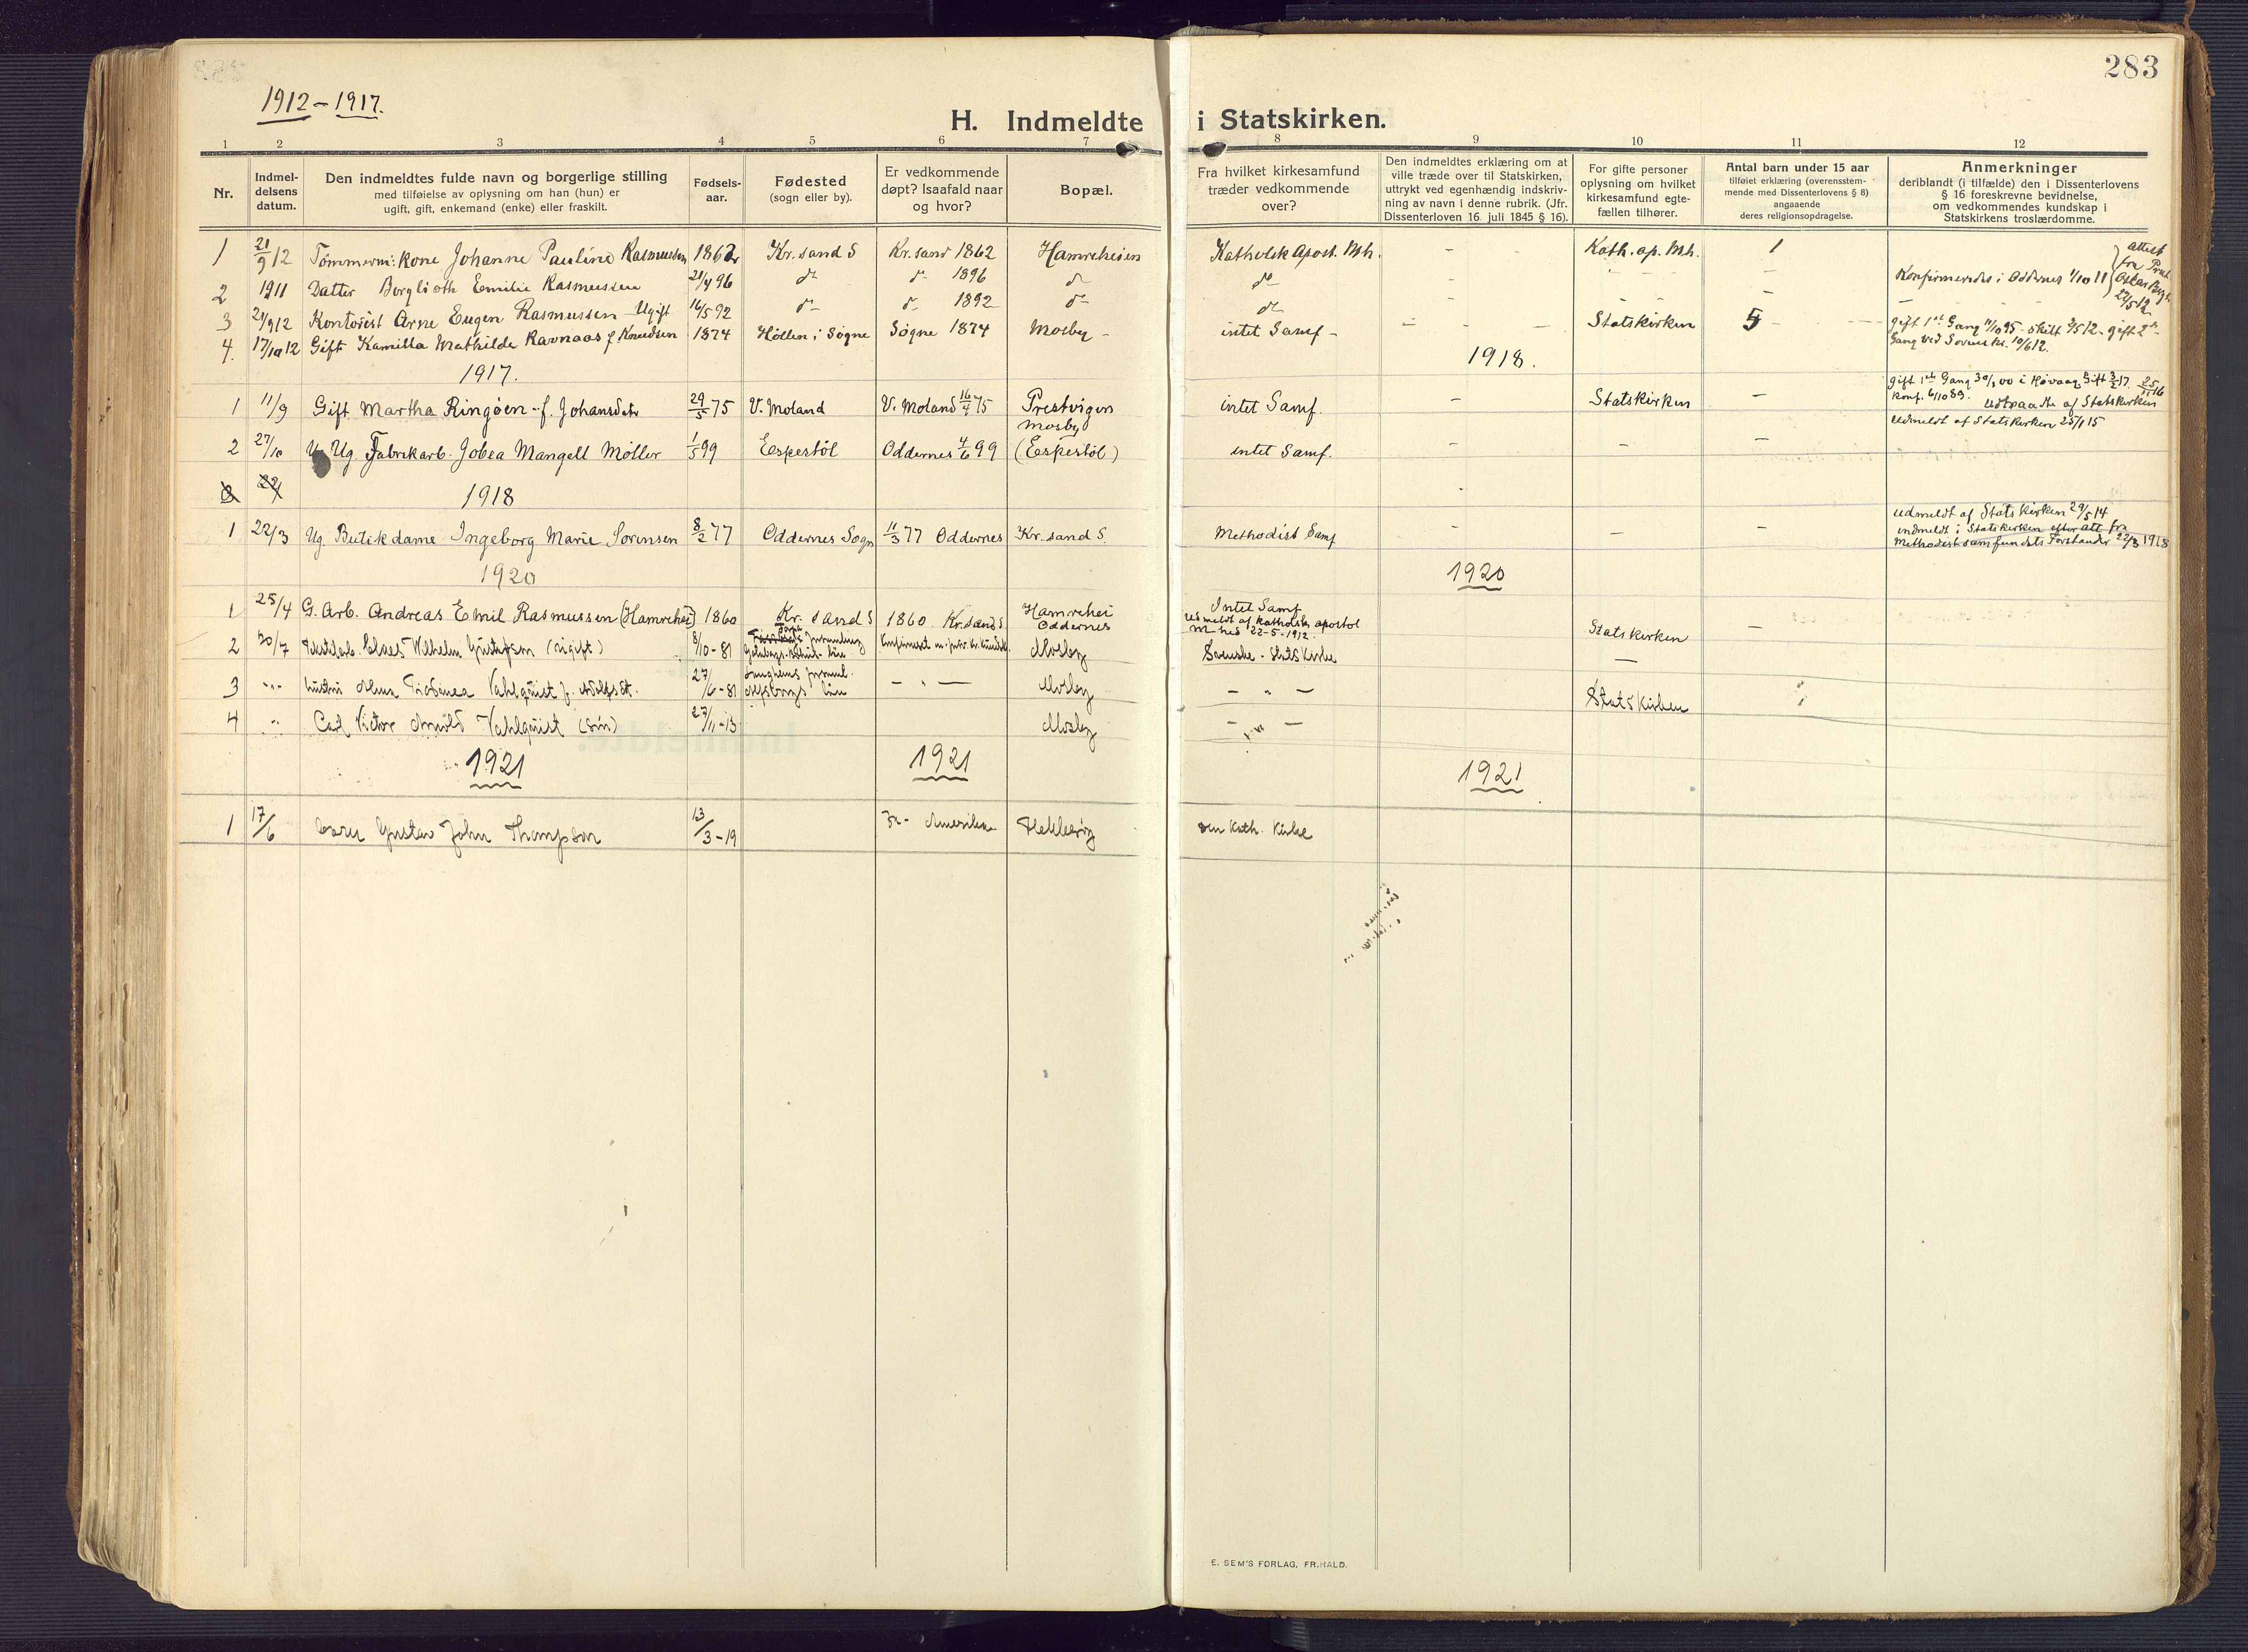 283
1912 - 1917.
H. Indmeldte i Statskirken.
1 2 3 4 5 6 7 8 9 10 11 12
Nr.
Indmel-
delsens
datum.
Den indmeldtes fulde navn og borgerlige stilling
med tilføielse av oplysning om han (hun) er
ugift, gift, enkemand (enke) eller fraskilt.
Fødsels-
aar.
Fødested
(sogn eller by).
Er vedkommende
døpt? Isaafald naar
og hvor?
Bopæl.
Fra hvilket kirkesamfund
træder vedkommende
over?
Den indmeldtes erklæring om at
ville træde over til Statskirken,
uttrykt ved egenhændig indskriv-
ning av navn i denne rubrik. (Jfr.
Dissenterloven 16. juli 1845 § 16).
For gifte personer
oplysning om hvilket
kirkesamfund egte-
fællen tilhører.
Antal barn under 15 aar
tilføiet erklæring (overensstem-
mende med Dissenterlovens § 8)
angaaende
deres religionsopdragelse.
Anmerkninger
deriblandt (i tilfælde) den i Dissenterlovens
§ 16 foreskrevne bevidnelse,
om vedkommendes kundskap i
Statskirkens troslærdomme.
1 21/9 12 Tømmerm: kone Johanne Pauline Rasmussen 1862 Kr.sand S Kr.sand 1862 Hamreheien Katholsk Apost. Mh. - - Kath. ap. Mh. 1
2 1911 Datter Borgljoth Emilie Rasmussen 21/4 96 do do 1896 do do - - - Konfirmeredes i Oddernes 1/10 11 } Attest
fra Præst
Oskar
22/5 12
3 21/9 12 Kontorist Arne Eugen Rasmussen - Ugift 16/5 92 do do 1892 do do - - -
4. 17/10 12 Gift Kamilla Mathilde Ravnaas f. Knudsen 1874 Høllen i Søgne Søgne 1874 Mosby - intet Samf - - - Statskirken 5 - gift 1ste Gang 11/10 95 - skilt 3/5 12 - gift 2den
Gang ved Sorenskr. 10/6 12.
1917. 1918.
1 11/9 Gift Martha Ringøen - f. Johansdatr 29/5 75 V. Moland V. Moland 16/4 75 Prestvigen
Mosby intet Samf. - Statskirken - gift 1ste Gang 30/1 00 i Høvaag Gift 3/2 17. 25/11 16
Konf. 6/10 89. Udtraadte af Statskirken
2 27/10 Ug. Fabrikarb. Jobea Mangell Møller 1/5 99 Espestøl Oddernes 4/6 99 (Eespestøl) intet Samf. - - - Udmeldt af Statskirken 25/1 15
3 22/
1918
1 22/3 Ug. Butikdame Ingeborg Marie Sorensen 8/2 77 Oddernes Sogn 11/3 77 Oddernes Kr.sand S. Methodist Samf - - - udmeldt af Statskirken 29/5 14
indmeldt i Statskirken efter att fra
Methodistsamfundets Forstander 22/3 1918
1920 1920
1 25/4 G. Arb. Andreas Emil Rasmussen (Hamrehei) 1860 Kr. sand S 1860 Kr.sand S Hamrehei
Oddernes Intet Samf
udmeldt af katholsk apostol
m hed 22-5-1912. Statskirken -
2 20/7 Claes Wilhelm Gustafson (ugift) 8/10-81 Mosby Svenske-Statskirke -
3 -"- hustru Alma Vahlquist f. 27/6-81 län - " - Mosby - " - Statskirken
4 " Carl Victor Arnold Vahlquist (søn) 27/11-13 Mosby - " -
1921 1921 1921
1 17/6 Gustav John Thompson 13/3-19 Amerika Flekkerøy den kath. Kirke
E. SEM'S FORLAG, FR.HALD.